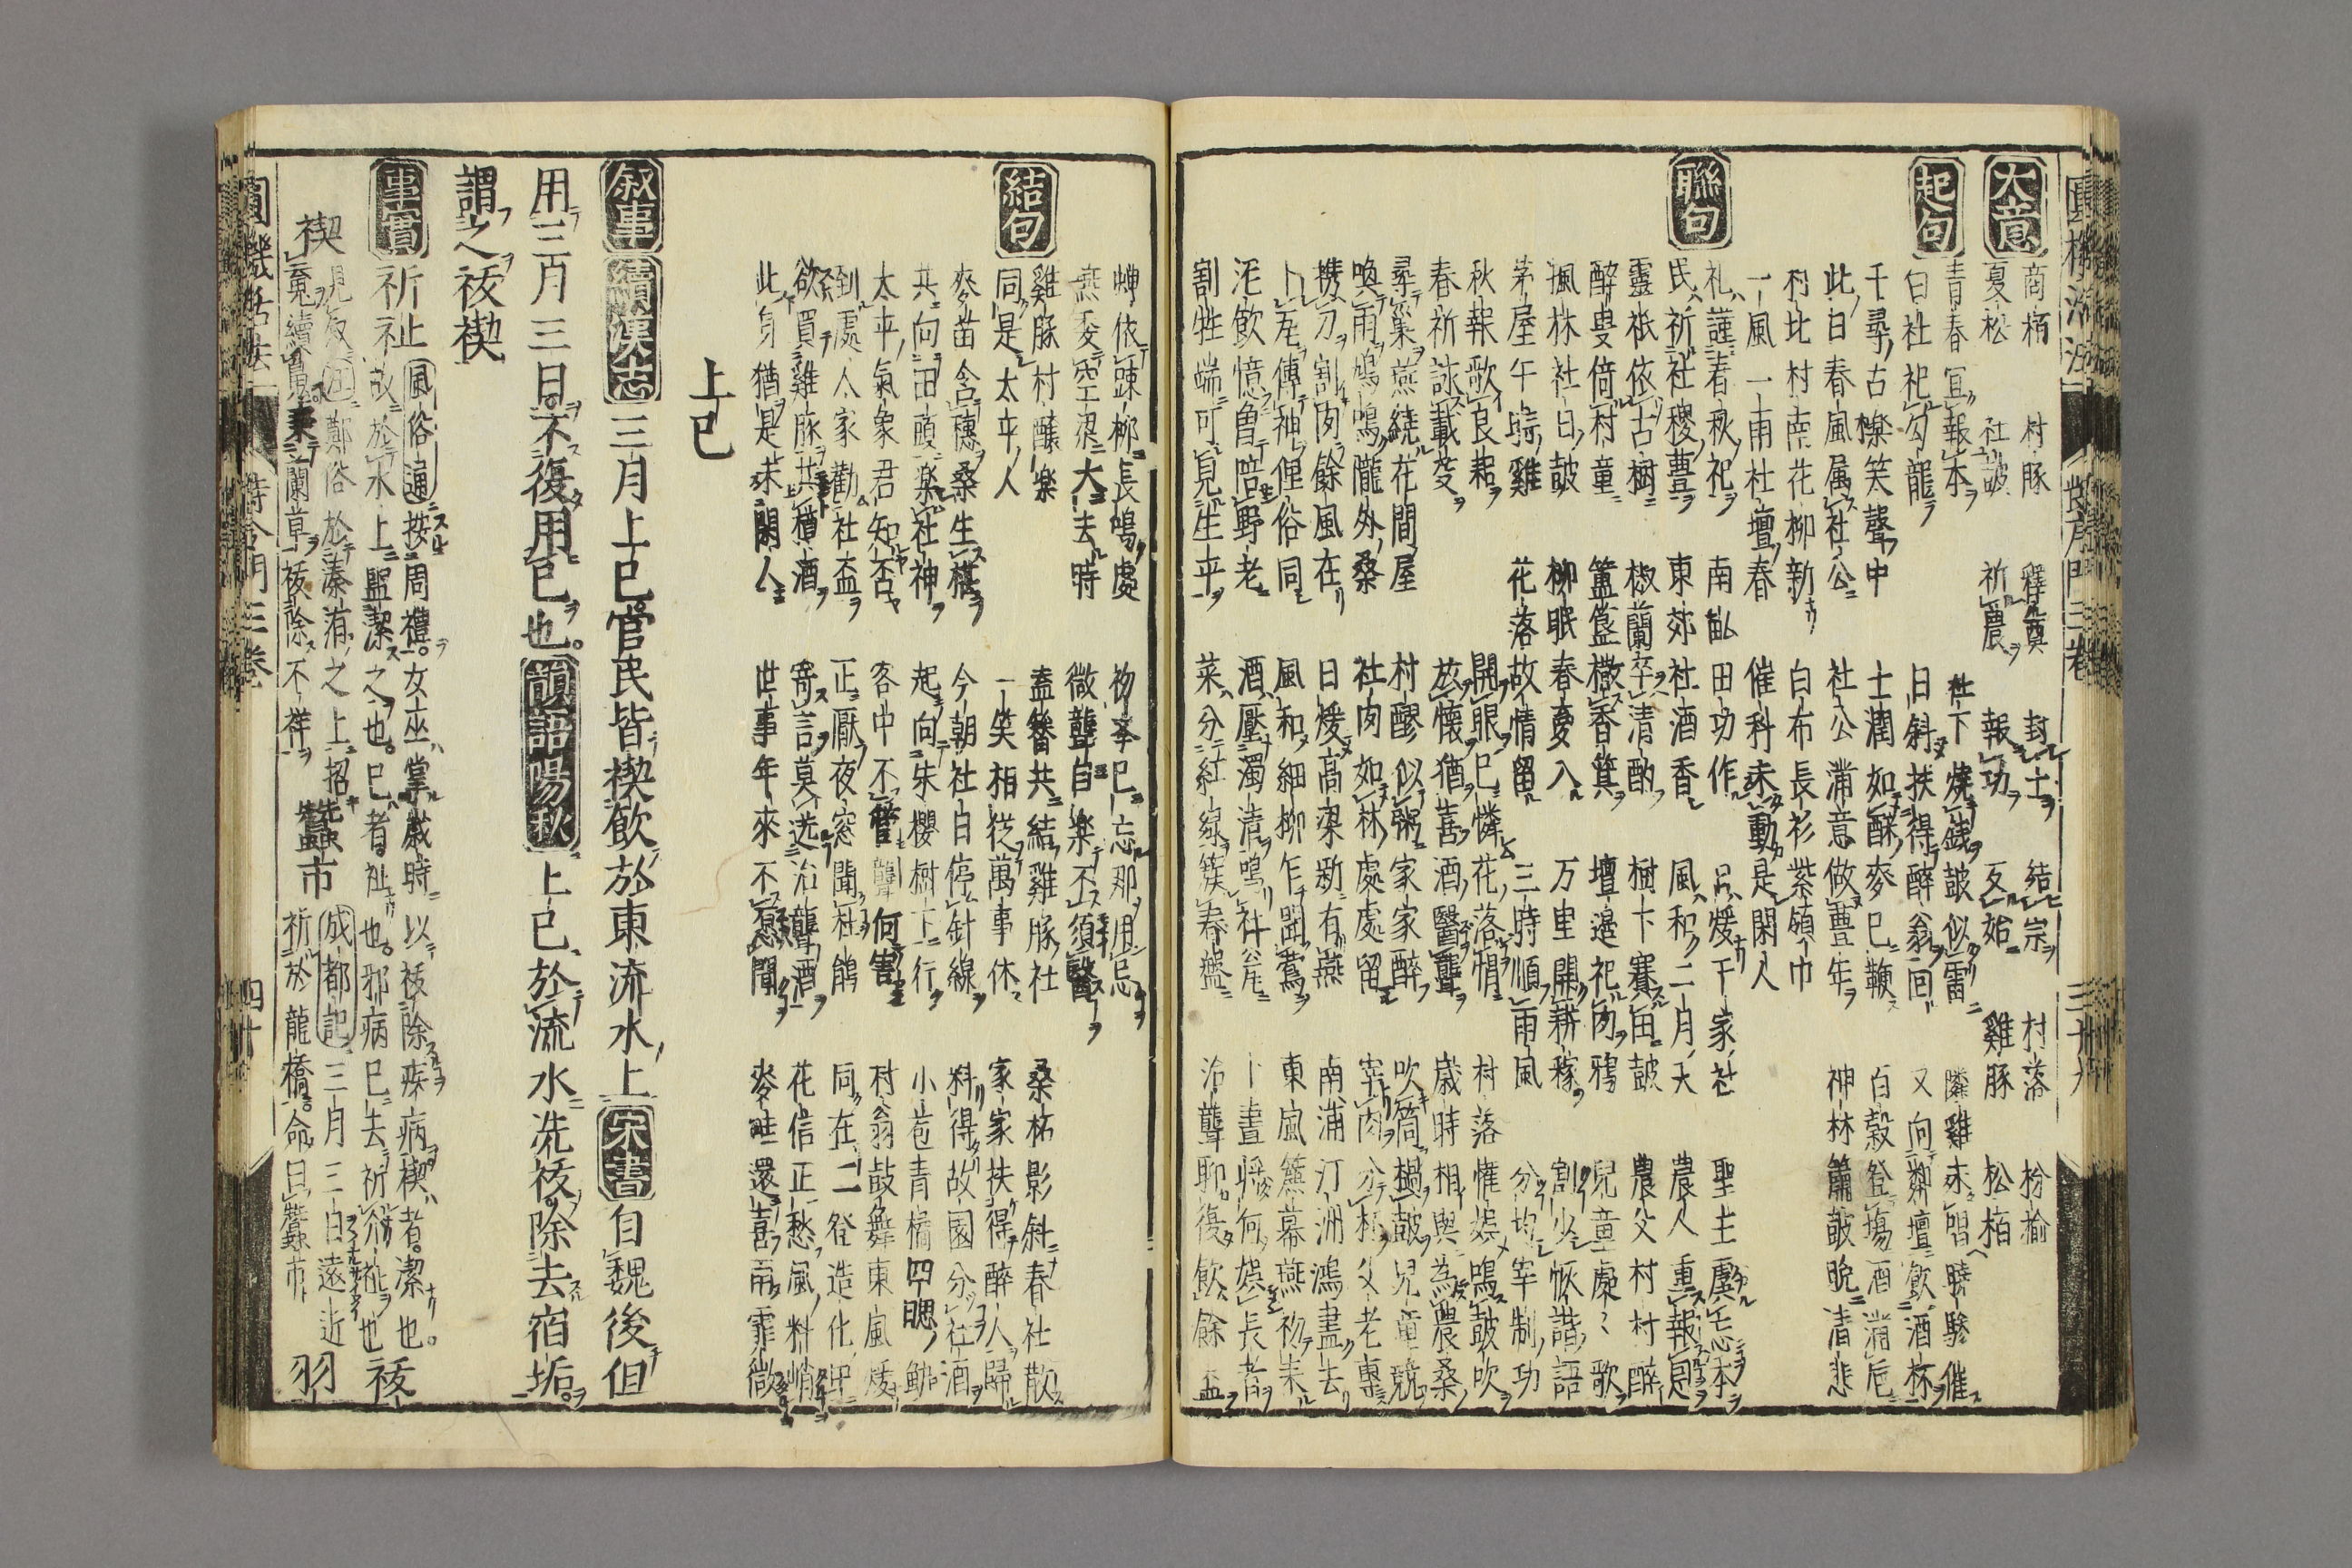 圓機活法 時序門三卷 三十九
大意 商栢 村豚 釋奠 封土 結宗 村落 枌榆
夏松 社皷 祈農 報功 反始 雞豚 松栢
起句 青春宜報本 社下燒錢皷似雷 隣雞未唱曉驂催
白社祀勾龍 日斜扶得醉翁囘 又向鄰壇飲酒杯
千尋古櫟笑聲中 土潤如酥麥已鞕 白穀登塲酒滿巵
此日春風属社公 社公滿意做豊年 神林簫皷晚清悲
村北村南花柳新 白布長衫紫領巾
一風一雨杜壇春 催科未動是閑人
聯句 礼謹春秋祀 南畝田功作 煖千家社 聖主虔忘本
民祈社稷豊 東郊社酒香 風和二月天 農人重報息
靈祇依古樹 椒蘭卒清酌 樹下賽田皷 農父村村醉
醉叟倚村童 簠簋香箕 壇邊祀肉鴉 兒童處〻歌
楓林社日皷 柳眠春憂入 万里開耕稼 割少恢諧語
茅屋午時雞 花落故情留 三時順雨風 分均宰制功
秋報歌良耜 開眼已憐花落悄 村落惟娯鳴皷吹
春祈詠載芟 放懷猶喜酒醫聾 歳時相與為農桑
尋巢燕繞花間屋 村醪似粥家家醉 吹筒撾皷兒童競
喚雨鳩鳴隴外桑 社肉如林處處留 宰肉分杯父老專
携刀割肉餘風在 日煖高梁新有燕 南浦汀洲鴻盡去
卜瓦傳神俚俗同 風和細柳乍聞鶯 東風簾幕燕初來
汚飲憶曽陪野老 酒壓濁清鳴社瓮 卜晝將何娯長者
割牲端可見生平 菜分紅綠簇春盤 治聾聊復飲餘盃
蟬依踈柳長鳴處 初來已忘那用忌
燕委空梁大去時 微聾自樂不須醫
結句 雞豚村醵樂 盍簪共結雞豚社 桑柘影斜春社散
同是太平人 一笑相從萬事休 家家扶得醉人歸
麥苗含穗桑生椹 今朝社日停針線 料得故園分社酒
共向田頭楽社神 起向朱櫻樹下行 小苞青橘四腮鱸
太平氣象君知否 客中不管聾何害 村翁鼓舞東風煖
到處人家勸社盃 正厭夜窓聞杜鵑 同在二登造化中
欲買雞豚共樽酒 寄言莫送治聾酒 花信正愁風料峭
此身猶是未閑人 世事年來不聞 麥畦還喜雨霏微
上巳
叙事 續漢志 三月上巳官民皆禊飲於東流水上 宋書 自魏後但
用三月三日不復用巳也。 韻語陽秋 上巳於流水洗祓除去宿垢。
謂之祓禊
事實 祈祉 風俗通 按周禮。女巫掌歳時以祓除疾病禊者。潔也。
故於水上盥潔之也。巳者。祉也。邪病巳去祈介祉也 祓
禊 鄭俗於溱洧之上招
䰟續魄。秉蘭草祓除不祥 蠶市 成都記 三月三日遠近
祈於龍橋。命曰蠶市 羽
圓機活法 時令門三卷 四十